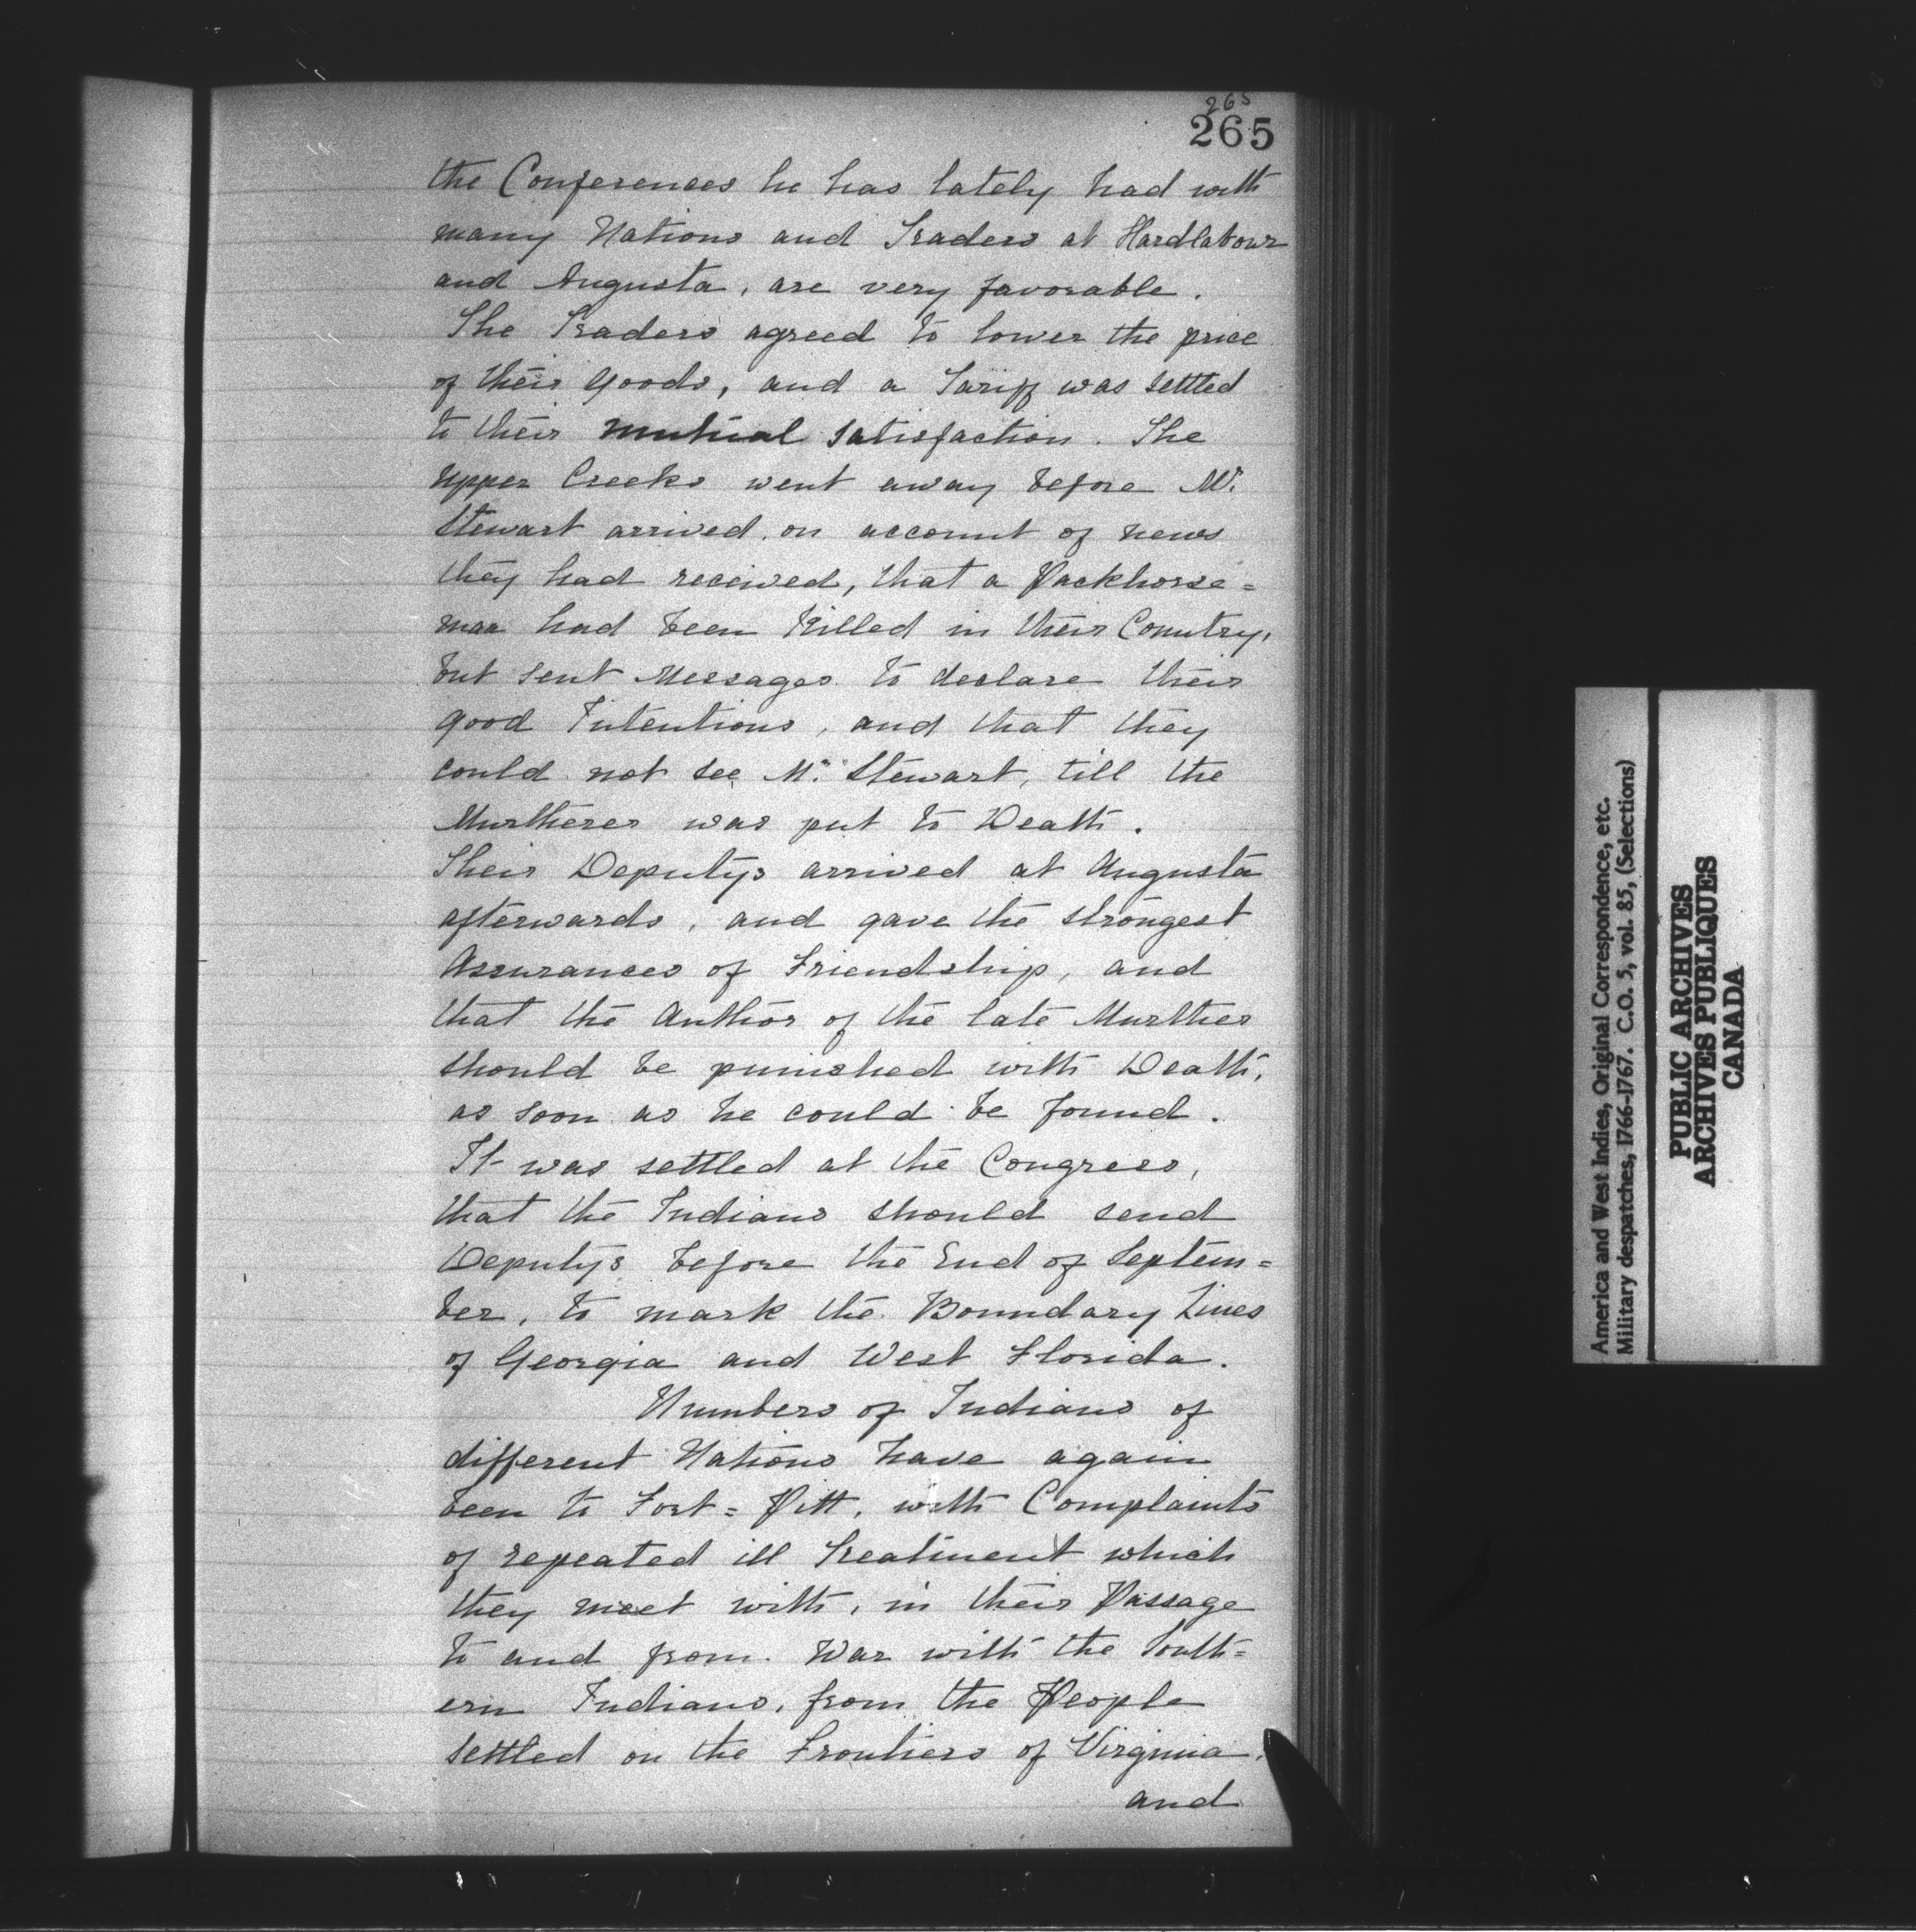 265
265
the Conferences he has lately had with
many Nations and Traders at Hardlabour
and Augusta, are very favorable.
The Traders agreed to lower the price
of their Goods, and a Tariff was settled
to their mutual satisfaction. The
upper Creeks went away before Mr.
Stewart arrived, on account of news
they had received, that a Packhorse=
man had been Killed in their Country,
but sent Messages to declare their
good Intentions, and that they
could not see Mr. Stewart, till the
Murtherer was put to Death.
Their Deputys arrived at Augusta
afterwards, and gave the strongest
Assurances of Friendship, and
that the Author of the late Murther
should be punished with Death,
as soon as he could be found.
It was settled at the Congress,
that the Indians should send
Deputys before the End of Septem=
ber, to mark the Boundary Lines
of Georgia and West Florida.
Numbers of Indians of
different Nations have again
been to Fort=Pitt, with Complaints
of repeated ill Treatment which
they meet with, in their Passage
to and from War with the South=
ern Indians, from the People
settled on the Frontiers of Virginia,
and
America and West Indies, Original Correspondence, etc.
Military despatches, 1766-1767. C.O. 5, vol. 85, (Selections)
PUBLIC ARCHIVES
ARCHIVES PUBLIQUES
CANADA